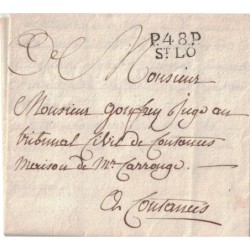 P.48.P
ST LO
Monsieur
Monsieur juge au
tribunal Civil de Coutances
maison de Mr Carrouge
A Coutances